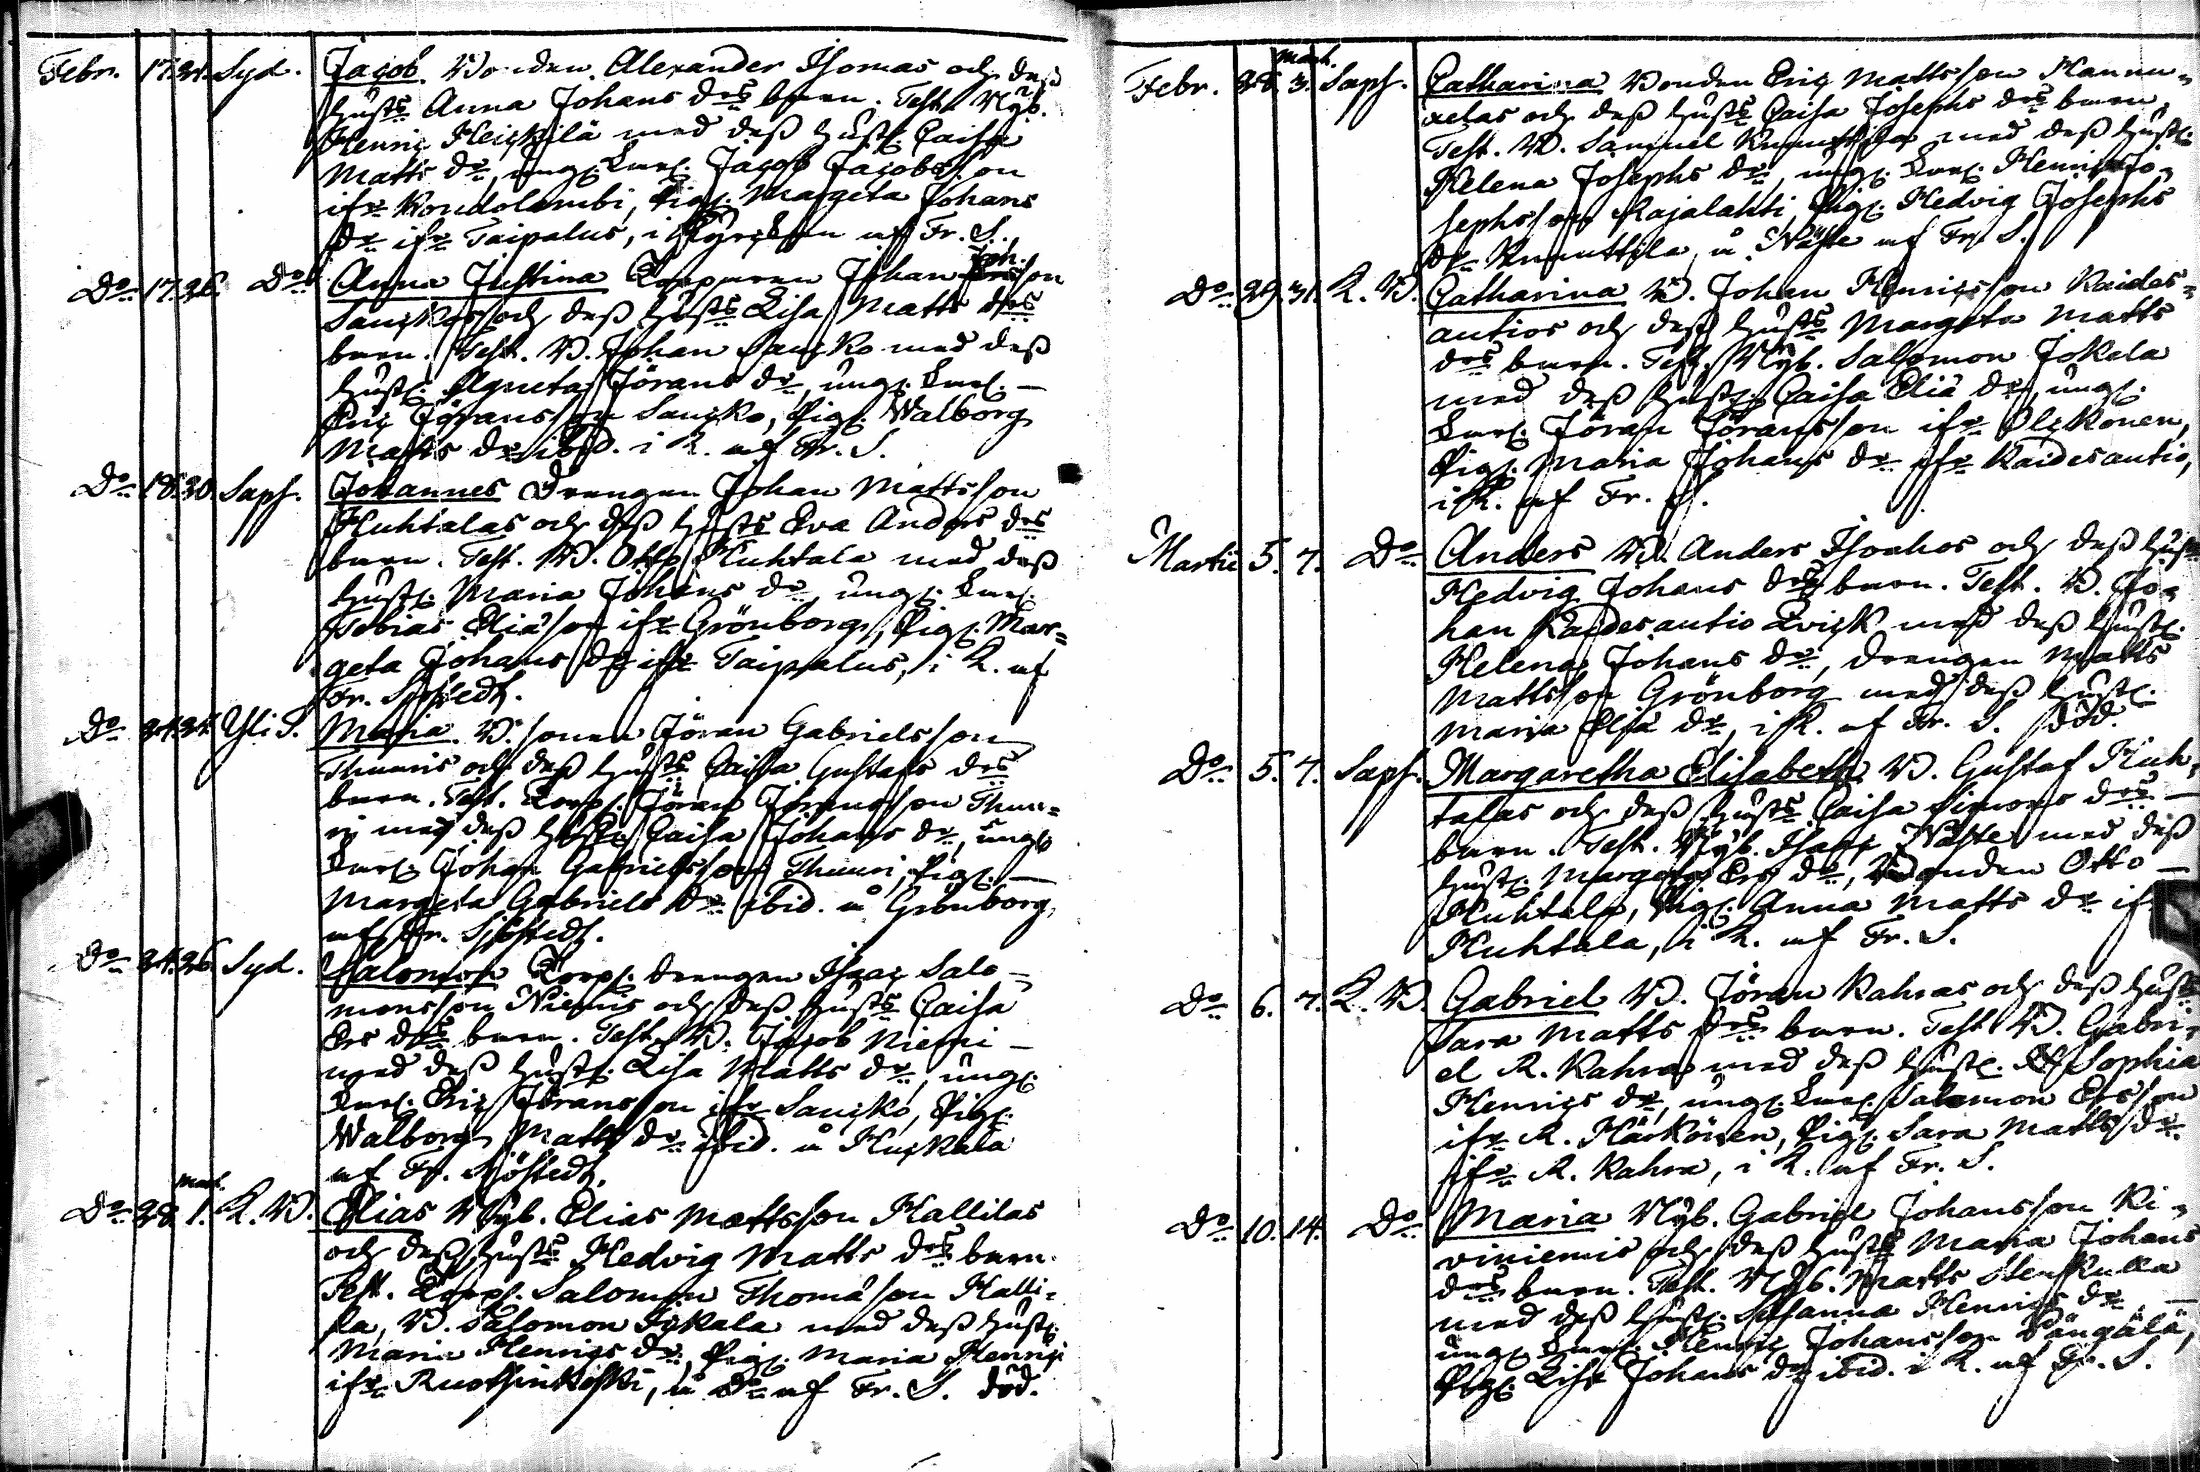 Febr. 17. 21. Syd. Jacob Bonden Alexander Isomas och dess
hust:s Anna Johans d:rs barn. Test. Nyb.
Henric Heickilä med dess hust. Caisa
Matts d:r, ungk. Jacob Jacobsson
ifr. Kondolambi, Pig. Margeta Johans
d:r ifr. Taipalus, i Kyrckan af Fr. S.
D:o 17. 26. D:o Anna Justina Johan Joh. son
Sanckos och dess hust:s Lisa Matts d:rs
barn. Test. B. Johan Sancko med dess
hust. Agneta Jörans d:r, ungk. —
Eric Jöransson Sancko, Pig. Walborg
Matts d:r ibid. i K. af Fr. S.
D:o 18. 20. Saps. Johannes Drengen Johan Mattsson
Huhtalas och dess hust:s Eva Anders d:rs
barn. Test. B. Otto Huhtala med dess
hust. Maria Johans d:r, ungk.
Tobias Eliäson ifr. Grönborg, Pig. Mar-
geta Johans d:r ifr. Taipalus, i K. af
Fr. Sjöstedt.
D:o 24. Yli S. Maria B. sonen Jöran Gabrielsson
Thuuris och dess hust:s Caisa Gustafs d:rs
barn. Test. Jöran Jöransson Thuu-
ri med dess hust. Caisa Johans d:r, ungk.
Johan Gabrielsson Thuuri, Pig. —
Margeta Gabriels d:r ibid. å Grönborg,
af Fr. Sjöstedt.
D:o 24. 26. Syd. Salomon drengen Isaac Salo-
monsson Niemis och dess hust:s Caisa
Ers d:rs barn. Test. B. Jacob Niemi —
med dess hust. Lisa Matts d:r, ungk.
Eric Jöransson ifr. Sancko, Pig.
Walborg Matts d:r ibid. å Huckala
af Fr. Sjöstedt.
Mart.
D:o 28. 1. K. B. Elias Nyb. Elias Mattsson Kallilas
och dess hust:s Hedvig Matts d:rs barn.
Test. Salomon Thomäson Kalli-
la, B. Salomon Jokala med dess hust.
Maria Henrics d:r, Pig. Maria Henrics
ifr. Ruothinkoski, å d:o af Fr. S. död.
Mart.
Febr. 28. 3. Saps. Catharina Bonden Eric Mattsson Hannu-
xelas och dess hust:s Caisa Josephs d:rs barn,
Test. B. Samuel Knuuttila med dess hust.
Helena Josephs d:r, ungk. Henric Jo-
sephsson Rajalahti, Pig. Hedvig Josephs
d:r Knuuttila, å Näste af Fr. S.
D:o 29. 31. K. B. Catharina B. Johan Henricsson Kaides-
autios och dess hust:s Margeta Matts
d:rs barn. Test. Nyb. Salomon Jokela
med dess hust. Caisa Eliä d:r, ungk.
Jöran Jöransson ifr. Olckonen,
Pig. Maria Johans d:r ifr. Kaidesautio,
i K. af Fr. S.
Martii 5. 7. D:o Anders B. Anders Isoahos och dess hust:s
Hedvig Johans d:rs barn. Test. B. Jo-
han Kaidesautio Qvick med dess hust.
Helena Johans d:r, drengen Matts
Mattsson Grönborg med dess hust.
Maria Eliä d:r, i K. af Fr. S. död.
D:o 5. 7. Saps. Margaretha Elisabeth B. Gustaf Huh-
talas och dess hust:s Caisa Simons d:rs —
barn. Test. Nyb. Isaac Näste med dess
hust. Margeta Ers d:r, Bonden Otto —
Huhtala, Pig. Anna Matts d:r ifr.
Huhtala, i K. af Fr. S.
D:o 6. 7. K. B. Gabriel B. Jöran Kahras och dess hust:s
Sara Matts d:rs barn. Test. B. Gabri-
el R. Kahra med dess hust. Sophia
Henrics d:r, ungk. Salomon Ersson
ifr. R. Härkönen, Pig. Sara Matts d:r
ifr. R. Kahra, i K. af Fr. S.
D:o 10. 14. D:o Maria Nyb. Gabriel Johansson Ki-
viniemis och dess hust:s Maria Johans
d:rs barn. Test. Nyb. Matts Stenkulla
med dess hust. Susanna Henrics d:r, —
ungk. Henric Johansson Pängälä,
Pig. Lisa Johans d:r ibid. i K. af Fr. S.